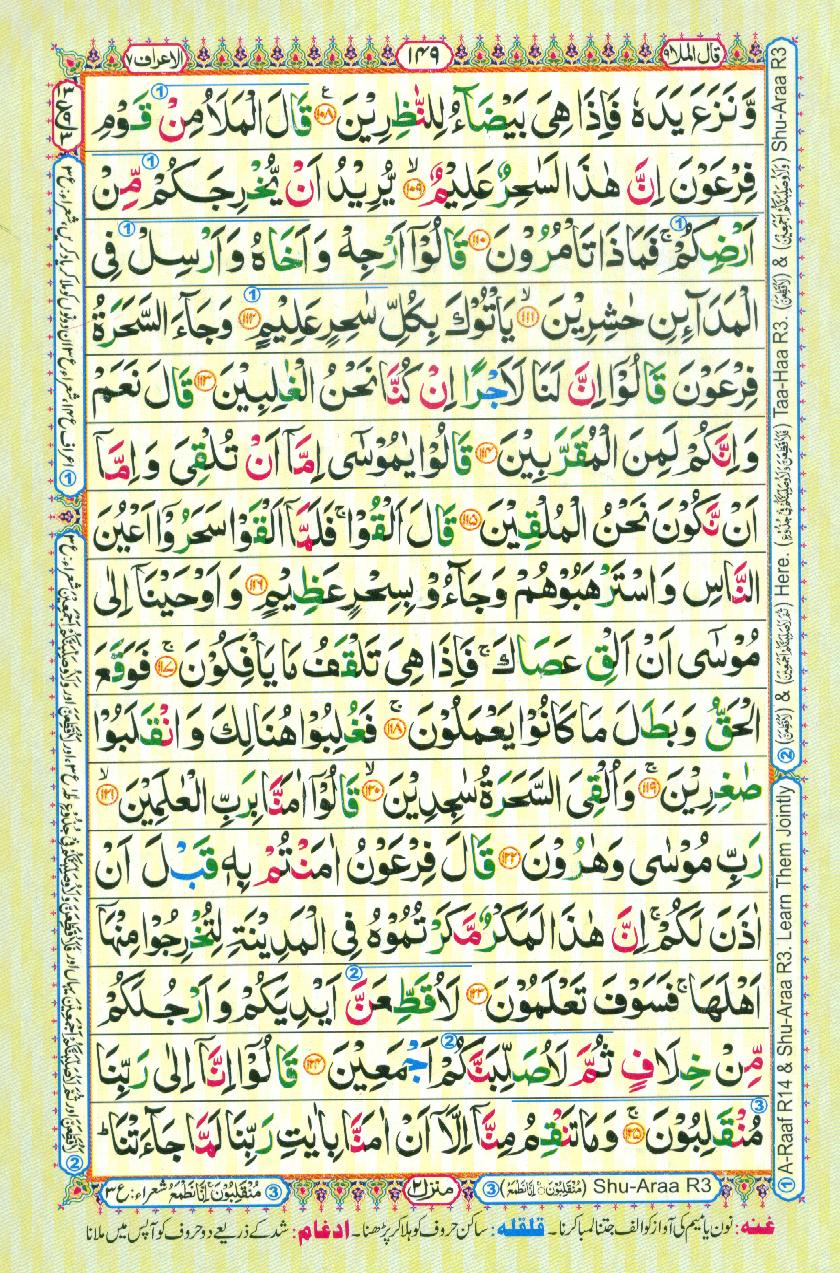 قال الملا ۹
۱۴۹
الاعراف ۷
وَّنَزَعَ يَدَهٗ فَاِذَا هِيَ بَيْضَآءُ لِلنّٰظِرِيْنَ ﴿۱۰۸﴾ قَالَ الْمَلَاُ مِنْ قَوْمِ
فِرْعَوْنَ اِنَّ هٰذَا لَسٰحِرٌ عَلِيْمٌ ﴿۱۰۹﴾ يُّرِيْدُ اَنْ يُّخْرِجَكُمْ مِّنْ
اَرْضِكُمْ ۚ فَمَاذَا تَاْمُرُوْنَ ﴿۱۱۰﴾ قَالُوْٓا اَرْجِهْ وَاَخَاهُ وَاَرْسِلْ فِي
الْمَدَآىِٕنِ حٰشِرِيْنَ ﴿۱۱۱﴾ يَاْتُوْكَ بِكُلِّ سٰحِرٍ عَلِيْمٍ ﴿۱۱۲﴾ وَجَآءَ السَّحَرَةُ
فِرْعَوْنَ قَالُوْٓا اِنَّ لَنَا لَاَجْرًا اِنْ كُنَّا نَحْنُ الْغٰلِبِيْنَ ﴿۱۱۳﴾ قَالَ نَعَمْ
وَاِنَّكُمْ لَمِنَ الْمُقَرَّبِيْنَ ﴿۱۱۴﴾ قَالُوْا يٰمُوْسٰٓى اِمَّآ اَنْ تُلْقِيَ وَاِمَّآ
اَنْ نَّكُوْنَ نَحْنُ الْمُلْقِيْنَ ﴿۱۱۵﴾ قَالَ اَلْقُوْا ۚ فَلَمَّآ اَلْقَوْا سَحَرُوْٓا اَعْيُنَ
النَّاسِ وَاسْتَرْهَبُوْهُمْ وَجَآءُوْ بِسِحْرٍ عَظِيْمٍ ﴿۱۱۶﴾ وَاَوْحَيْنَآ اِلٰى
مُوْسٰٓى اَنْ اَلْقِ عَصَاكَ ۚ فَاِذَا هِيَ تَلْقَفُ مَا يَاْفِكُوْنَ ﴿۱۱۷﴾ فَوَقَعَ
الْحَقُّ وَبَطَلَ مَا كَانُوْا يَعْمَلُوْنَ ﴿۱۱۸﴾ فَغُلِبُوْا هُنَالِكَ وَانْقَلَبُوْا
صٰغِرِيْنَ ﴿۱۱۹﴾ وَاُلْقِيَ السَّحَرَةُ سٰجِدِيْنَ ﴿۱۲۰﴾ قَالُوْٓا اٰمَنَّا بِرَبِّ الْعٰلَمِيْنَ ﴿۱۲۱﴾
رَبِّ مُوْسٰى وَهٰرُوْنَ ﴿۱۲۲﴾ قَالَ فِرْعَوْنُ اٰمَنْتُمْ بِهٖ قَبْلَ اَنْ
اٰذَنَ لَكُمْ ۚ اِنَّ هٰذَا لَمَكْرٌ مَّكَرْتُمُوْهُ فِي الْمَدِيْنَةِ لِتُخْرِجُوْا مِنْهَآ
اَهْلَهَا ۚ فَسَوْفَ تَعْلَمُوْنَ ﴿۱۲۳﴾ لَاُقَطِّعَنَّ اَيْدِيَكُمْ وَاَرْجُلَكُمْ
مِّنْ خِلَافٍ ثُمَّ لَاُصَلِّبَنَّكُمْ اَجْمَعِيْنَ ﴿۱۲۴﴾ قَالُوْٓا اِنَّآ اِلٰى رَبِّنَا
مُنْقَلِبُوْنَ ﴿۱۲۵﴾ وَمَا تَنْقِمُ مِنَّآ اِلَّآ اَنْ اٰمَنَّا بِاٰيٰتِ رَبِّنَا لَمَّا جَآءَتْنَا ؕ
① A-Raaf R14 & Shu-Araa R3. Learn Them Jointly
② & Here. Taa-Haa R3. & Shu-Araa R3
③ (مُنْقَلِبُوْنَ ۝ اِنَّا نَطْمَعُ) Shu-Araa R3
منزل ۲
③ مُنْقَلِبُوْنَ ۝ اِنَّا نَطْمَعُ شعراء: ع ۳
غنه: نون یا میم کی آواز کو الف جتنا لمبا کرنا۔ قلقله: ساکن حروف کو ہلا کر پڑھنا۔ ادغام: شد کے ذریعے دو حروف کو آپس میں ملانا